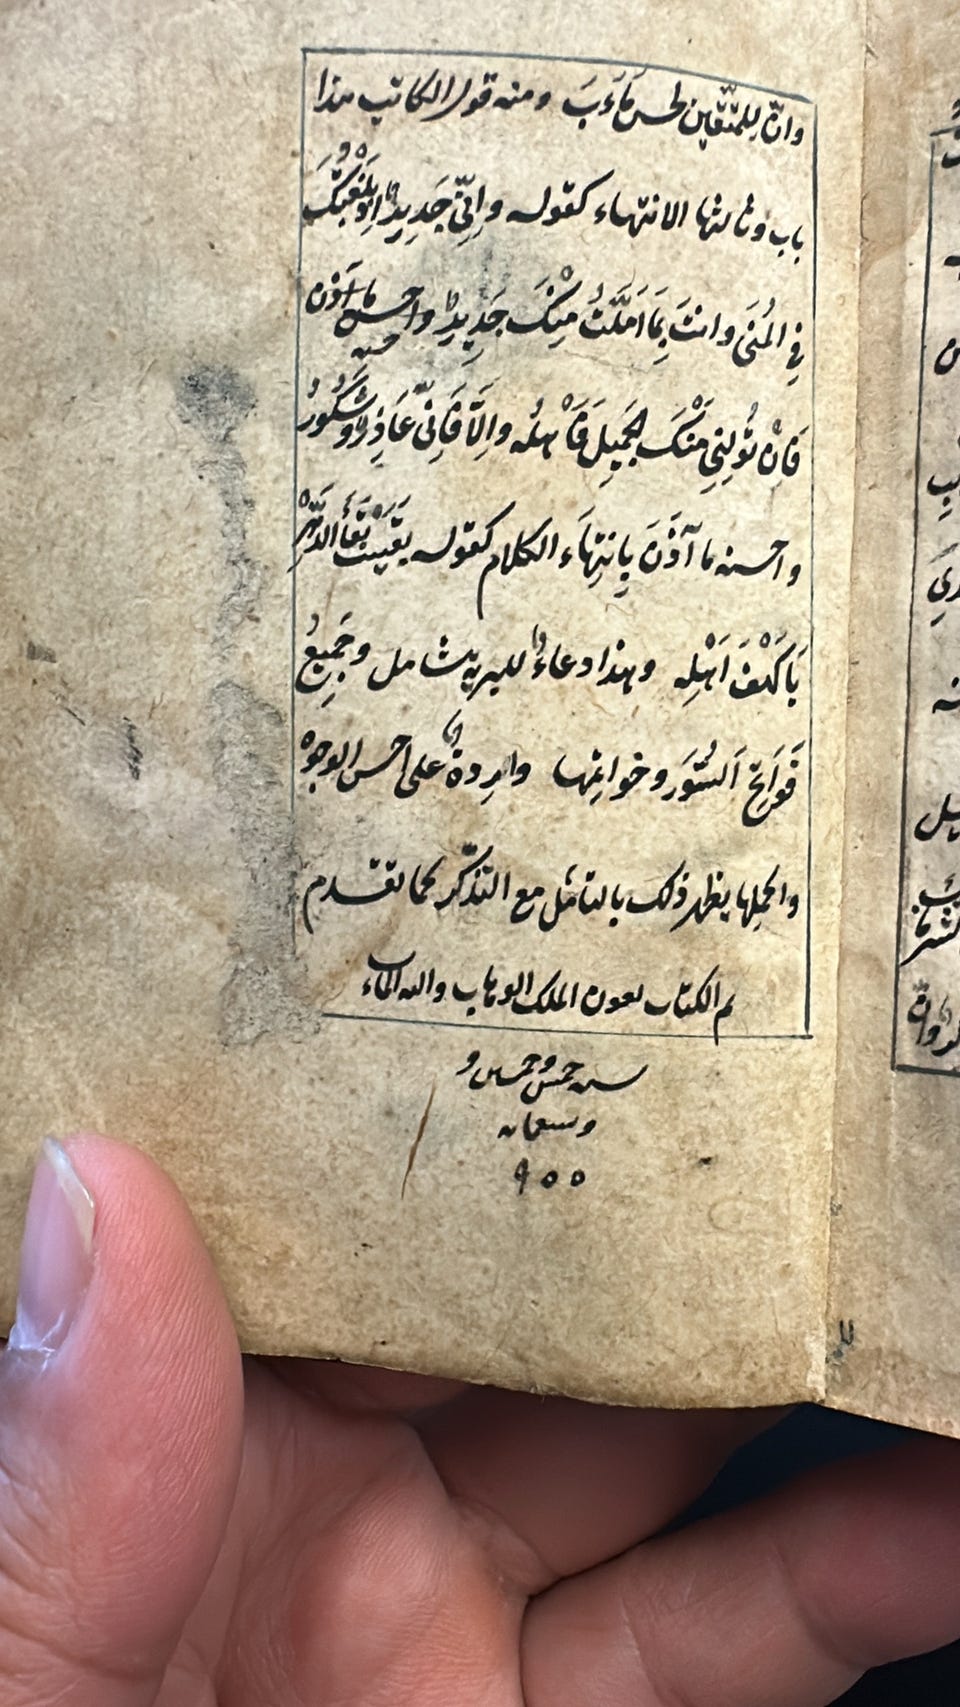 وانّ للمتّقين لحسن مَآبَ ومنه قول الكاتب هذا
باب وثالثها الانتهاء كقوله وانّي جَدِيرٌ اذ بَلَغْتُكَ
في المُنَى وانتَ بِمَا اَمَّلْتُ مِنْكَ جَدِيرٌ واحسن ما آذن
حسنه
فَاِنْ تُولِنِي مِنْكَ الجَمِيلَ فَاَهْلُه والّا فَانّي عَاذِرٌ وشَكُورُ
واحسنه ما آذَنَ بِانتِهَاء الكلام كقوله بَقَيْتَ بَقَاءَ الدَّهْرِ
يَا كَهْفَ اَهْلِه وهذا دعاءٌ للبريه شامل وجَمِيعُ
فَوَاتِح السُّوَر وخواتِمُها وارِدةٌ على احسن الوجوه
واكملها يظهر ذلك بالتامّل مع التذكّر لما تقدم
تم الكتاب بعون الملك الوهاب والله الماب
سنه خمس وخمسين و
وتسعمائه
٩٥٥